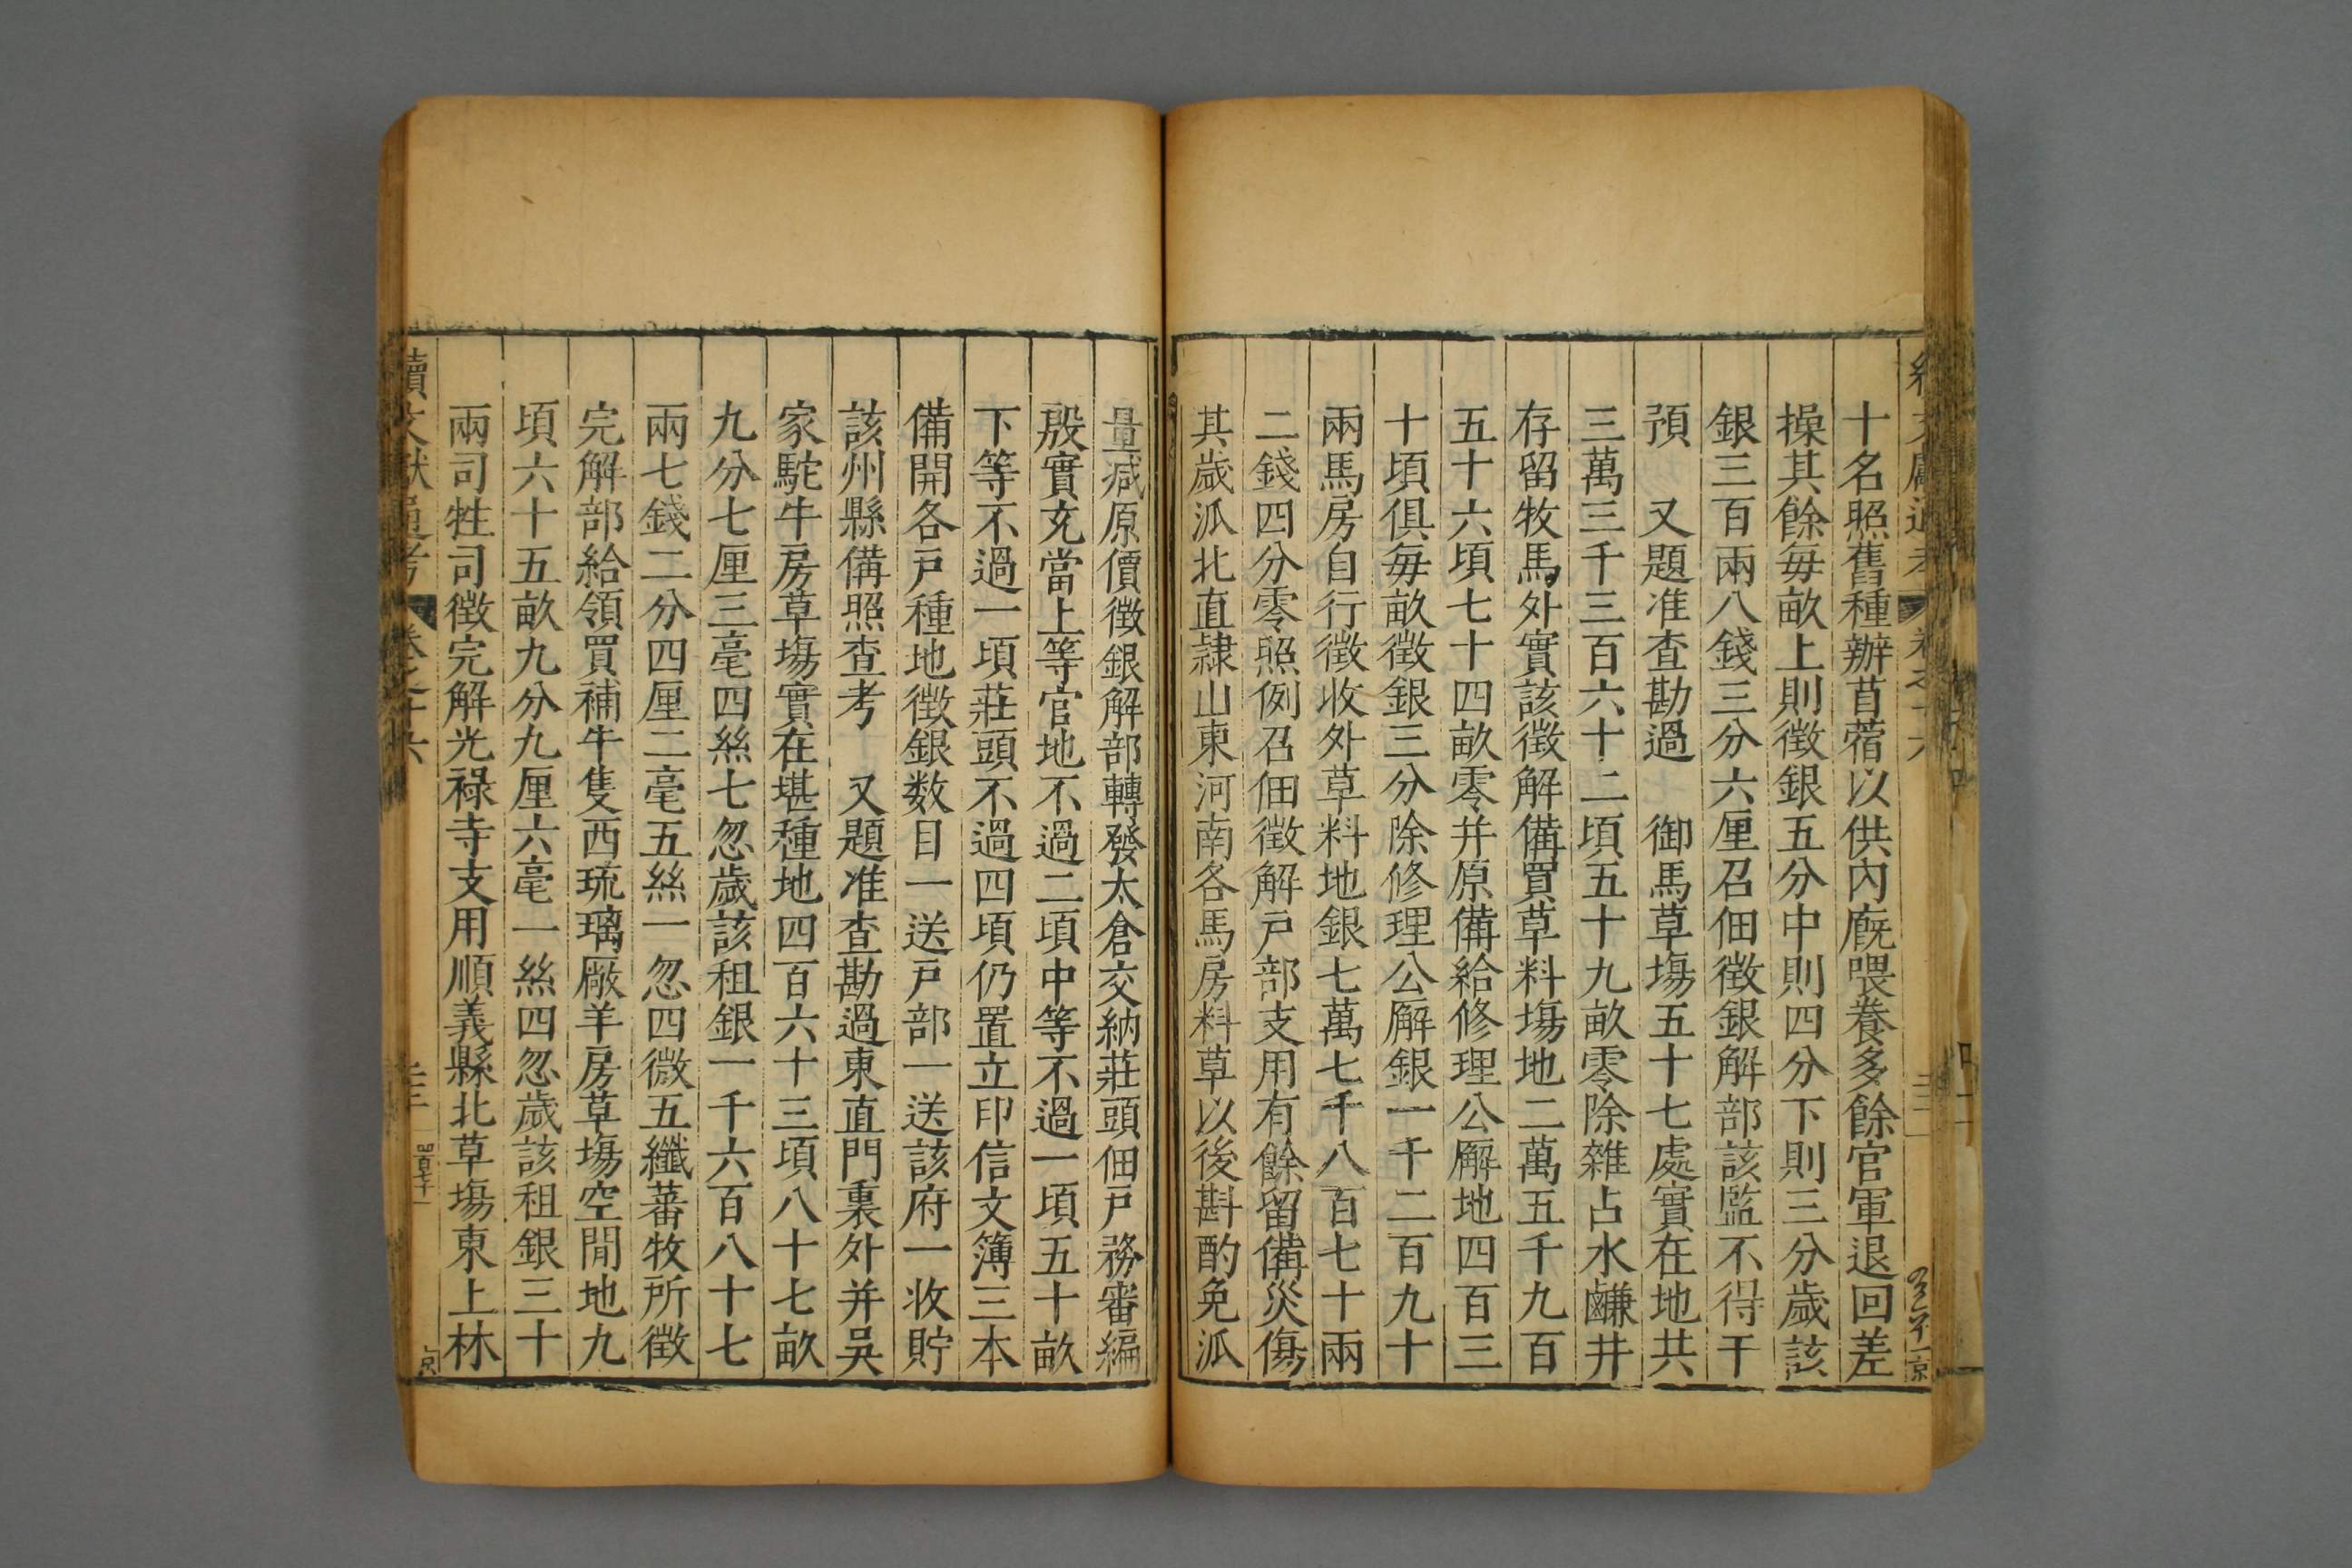 十名照舊種辦苜蓿以供內廐喂養多餘官軍退回差
操其餘每畝上則徵銀五分中則四分下則三分歲該
銀三百兩八錢三分六厘召佃徵銀解部該監不得干
預　又題准查勘過　御馬草塲五十七處實在地共
三萬三千三百六十二頃五十九畝零除雜占水鹻井
存留牧馬外實該徵解備買草料塲地二萬五千九百
五十六頃七十四畝零并原備給修理公廨地四百三
十頃俱每畝徵銀三分除修理公廨銀一千二百九十
兩馬房自行徵收外草料地銀七萬七千八百七十兩
二錢四分零照例召佃徵解戶部支用有餘留備災傷
其歲派北直隸山東河南各馬房料草以後斟酌免派
量減原價徵銀解部轉發太倉交納莊頭佃戶務審編
殷實充當上等官地不過二頃中等不過一頃五十畝
下等不過一頃莊頭不過四頃仍置立印信文簿三本
備開各戶種地徵銀数目一送戶部一送該府一收貯
該州縣備照查考　又題准查勘過東直門裏外并吳
家駝牛房草塲實在堪種地四百六十三頃八十七畝
九分七厘三毫四絲七忽歲該租銀一千六百八十七
兩七錢二分四厘二毫五絲一忽四微五纖蕃牧所徵
完解部給領買補牛隻西琉璃厰羊房草塲空閒地九
頃六十五畝九分九厘六毫一絲四忽歲該租銀三十
兩司牲司徵完解光祿寺支用順義縣北草塲東上林
續文獻通考　卷之十六